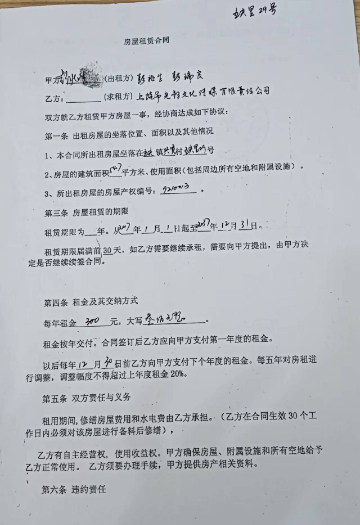 29号
房屋租赁合同
甲方 (出租方)
乙方: (求租方) 上海 文化传媒有限责任公司
双方就乙方租赁甲方房屋一事，经协商达成如下协议:
第一条 出租房屋的坐落位置、面积以及其他情况
1、本合同所出租房屋坐落在 镇 村 号
2、房屋的建筑面积 平方米、使用面积(包括周边所有空地和附属设施)。
3、所出租房屋的房屋产权编号: 。
第三条 房屋租赁的期限
租赁期限为 年。从 年 1 月 1 日起至 年 12 月 31 日。
租赁期限届满前 30 天，如乙方需要继续承租，需要向甲方提出，由甲方决
定是否继续续签合同。
第四条 租金及其交纳方式
每年租金 300 元，大写 叁佰元整 。
租金按年交付。合同签订后乙方应向甲方支付第一年度的租金。
以后每年 12 月 30 日前乙方向甲方支付下个年度的租金。每五年对房租进
行调整，调整幅度不得超过上年度租金 20%。
第五条 双方责任与义务
租用期间,修缮房屋费用和水电费由乙方承担。(乙方在合同生效 30 个工
作日内必须对该房屋进行备料后修缮)，
乙方有自主经营权，使用收益权。甲方确保房屋、附属设施和所有空地给予
乙方正常使用。 乙方须要办理手续，甲方提供房产相关资料。
第六条 违约责任